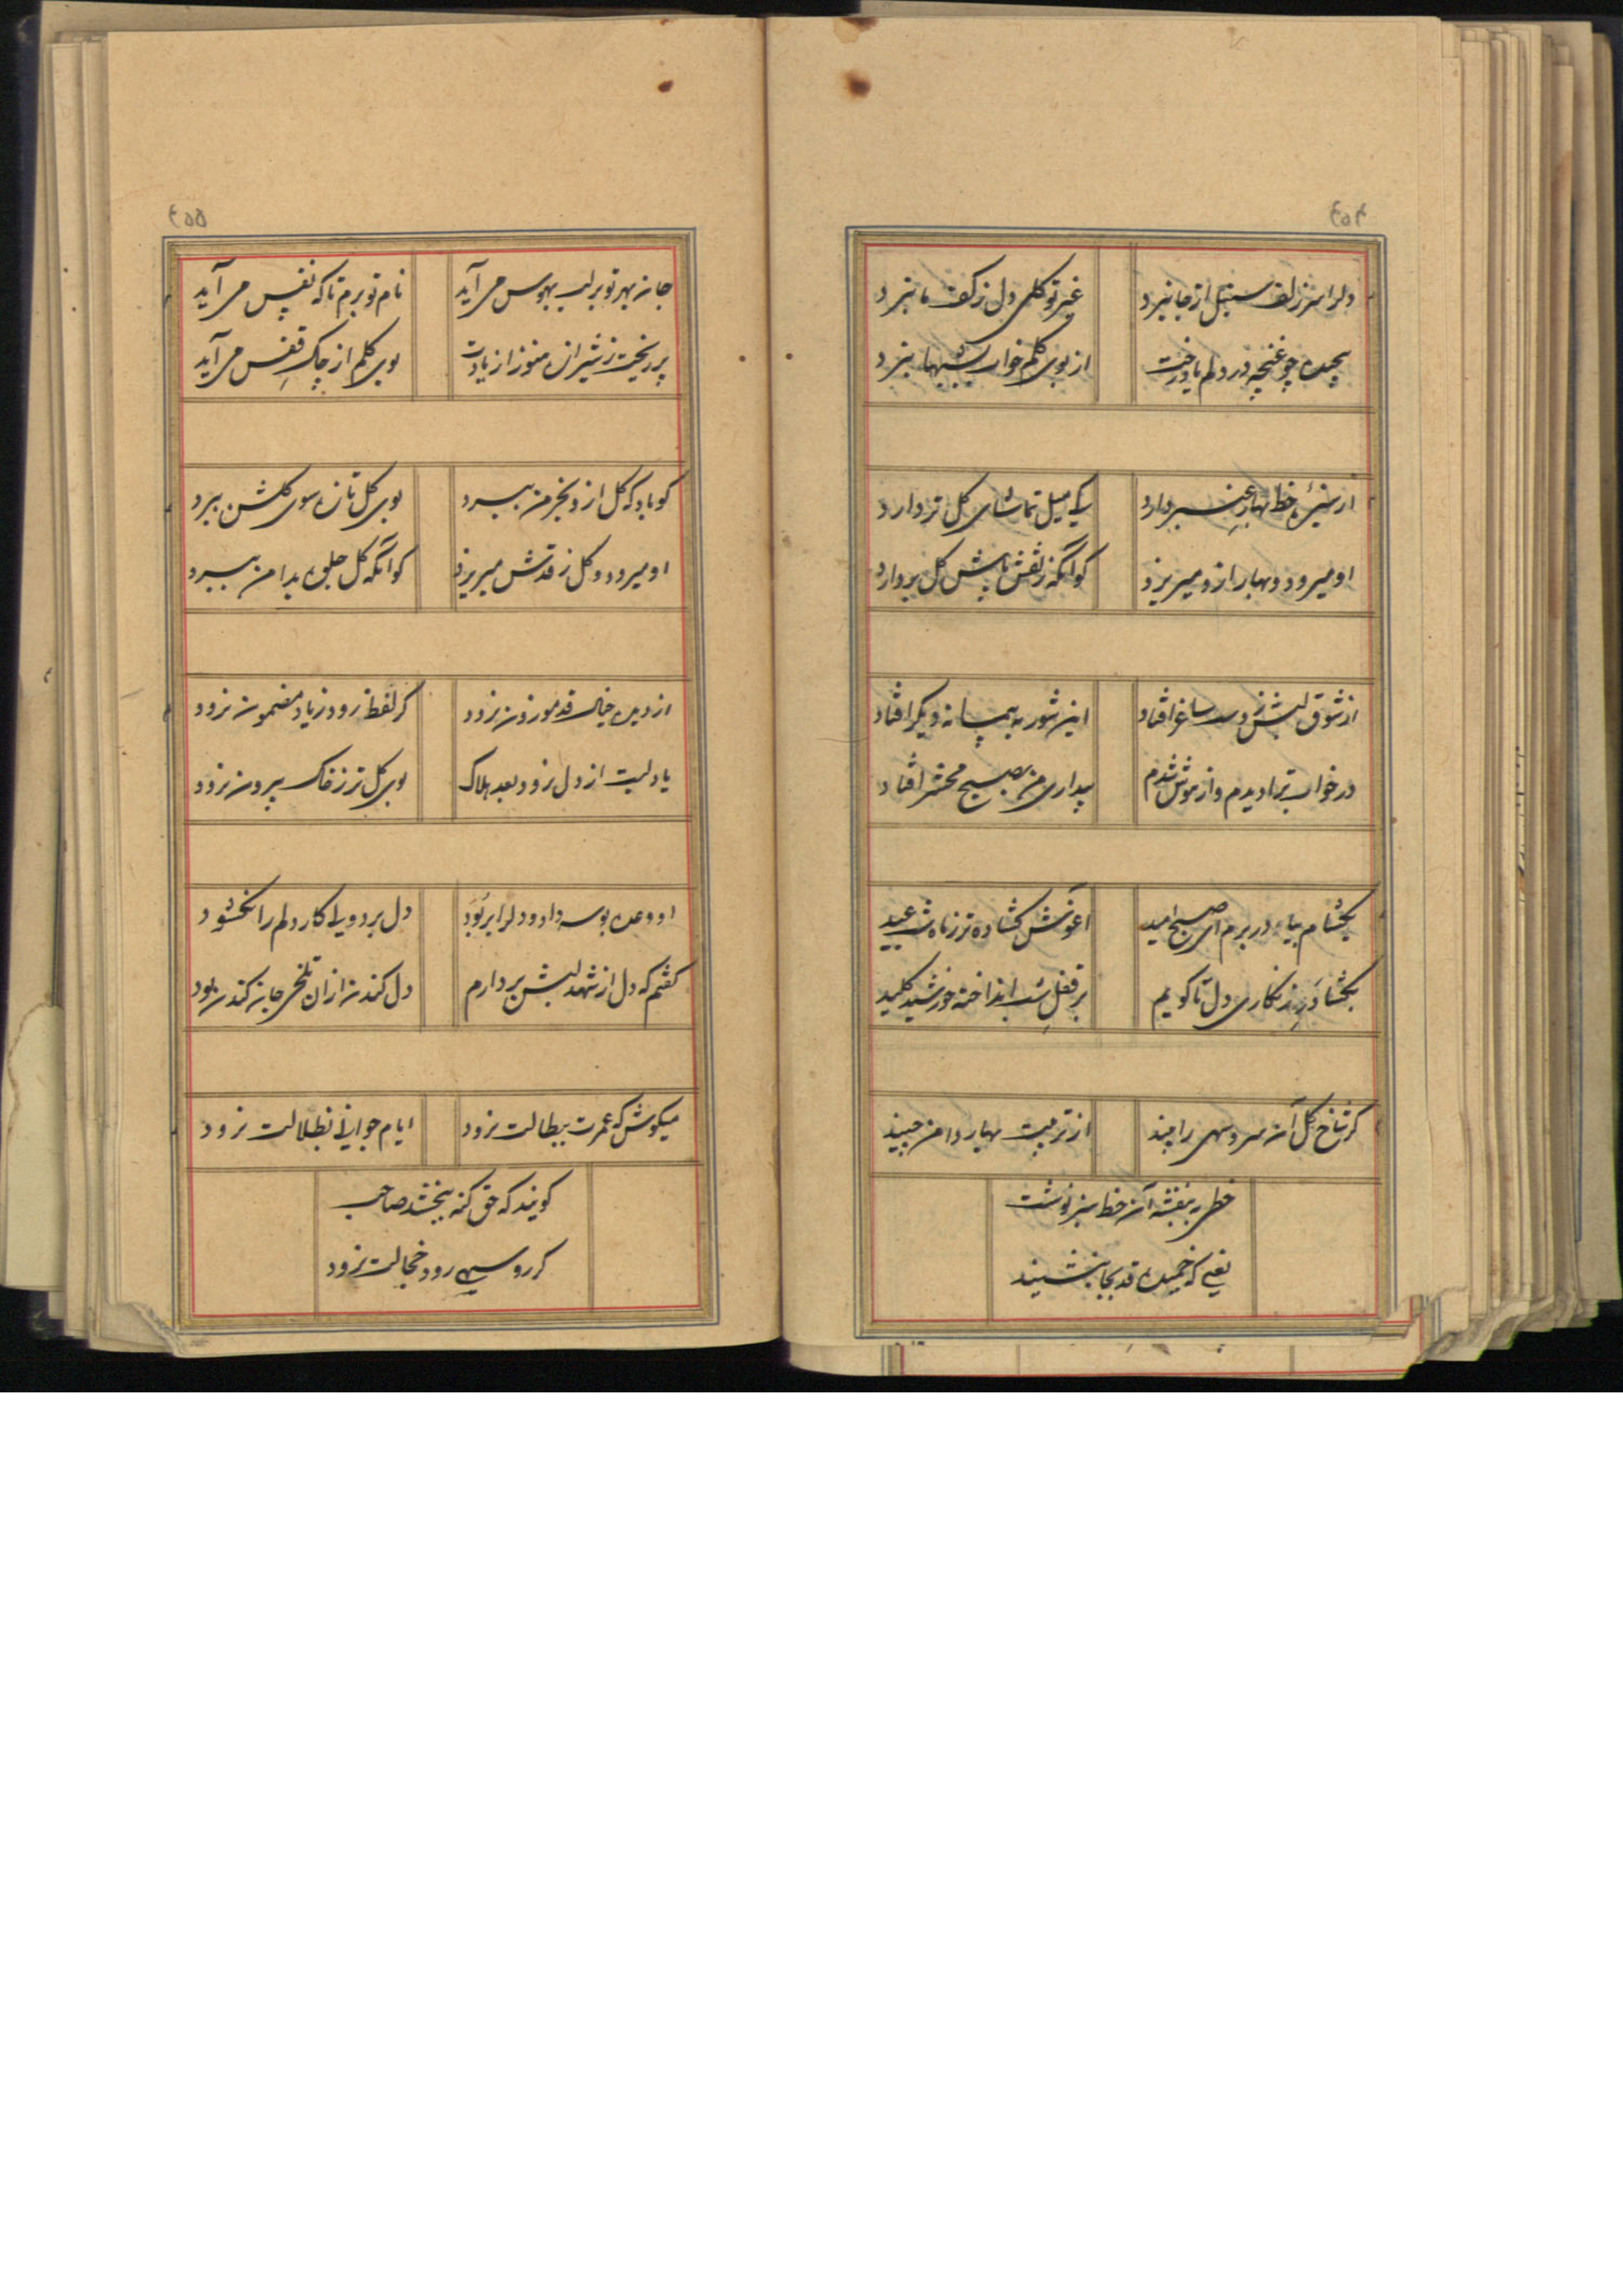 دلرا سر زلف سنبل از جا نبرد
غیر تو گلی دل ز کف ما نبرد
پیچیده چو غنچه در دلم یاد رخت
از بوی گلم خواب شبها نبرد
از سبزئ خط بهار عنبر دارد
کی میل تماشای گل تر دارد
او میرود و بهار ازو میریزد
کو آنکه ز نقش پاش گل بردارد
از شوق لبش ز دست ساغر افتاد
این شور به پیمانه دیگر افتاد
در خواب ترا دیدم و از هوش شدم
بیداری من بصبح محشر افتاد
بگشام بیا در برم ای صبح امید
آغوش گشاده‌تر ز ماه شب عید
بگشا در زنگاری دل تا گویم
بر قفل شب انداخته خورشید کلید
گر شاخ گل آن سرو سهی را چیند
از تربیت بهار دامن چیند
خطی به بنفشه آن خط سبز نوشت
یعنی که خمیده قد بجا بنشیند
جان بهر تو بر لب بهوس می آید
نام تو برم تا که نفس می آید
پر ریخت ز شیرازه هنوز از یادت
بوی گلم از چاک قفس می آید
کو باد که گل ازو بخرمن ببرد
بوی گل تازه سوی گلشن ببرد
او میرود و گل ز قدش میریزد
کو آنکه گل جلوه بدامن ببرد
از دیده خیال قد موزون نرود
گر لفظ رود ز یاد مضمون نرود
یاد لبت از دل نرود بعد هلاک
بوی گل تر ز خاک بیرون نرود
او وعده بوسه داد و دلرا بربود
دل برد ولی کار دلم را نگشود
گفتم که دل از شهد لبش بردارم
دل کندن ازان تلخی جان کندن بود
میکوش که عمرت ببطالت نرود
ایام جوانی بضلالت نرود
گویند که حق گنه ببخشد صاحب
گر روسیهی رود خجالت نرود